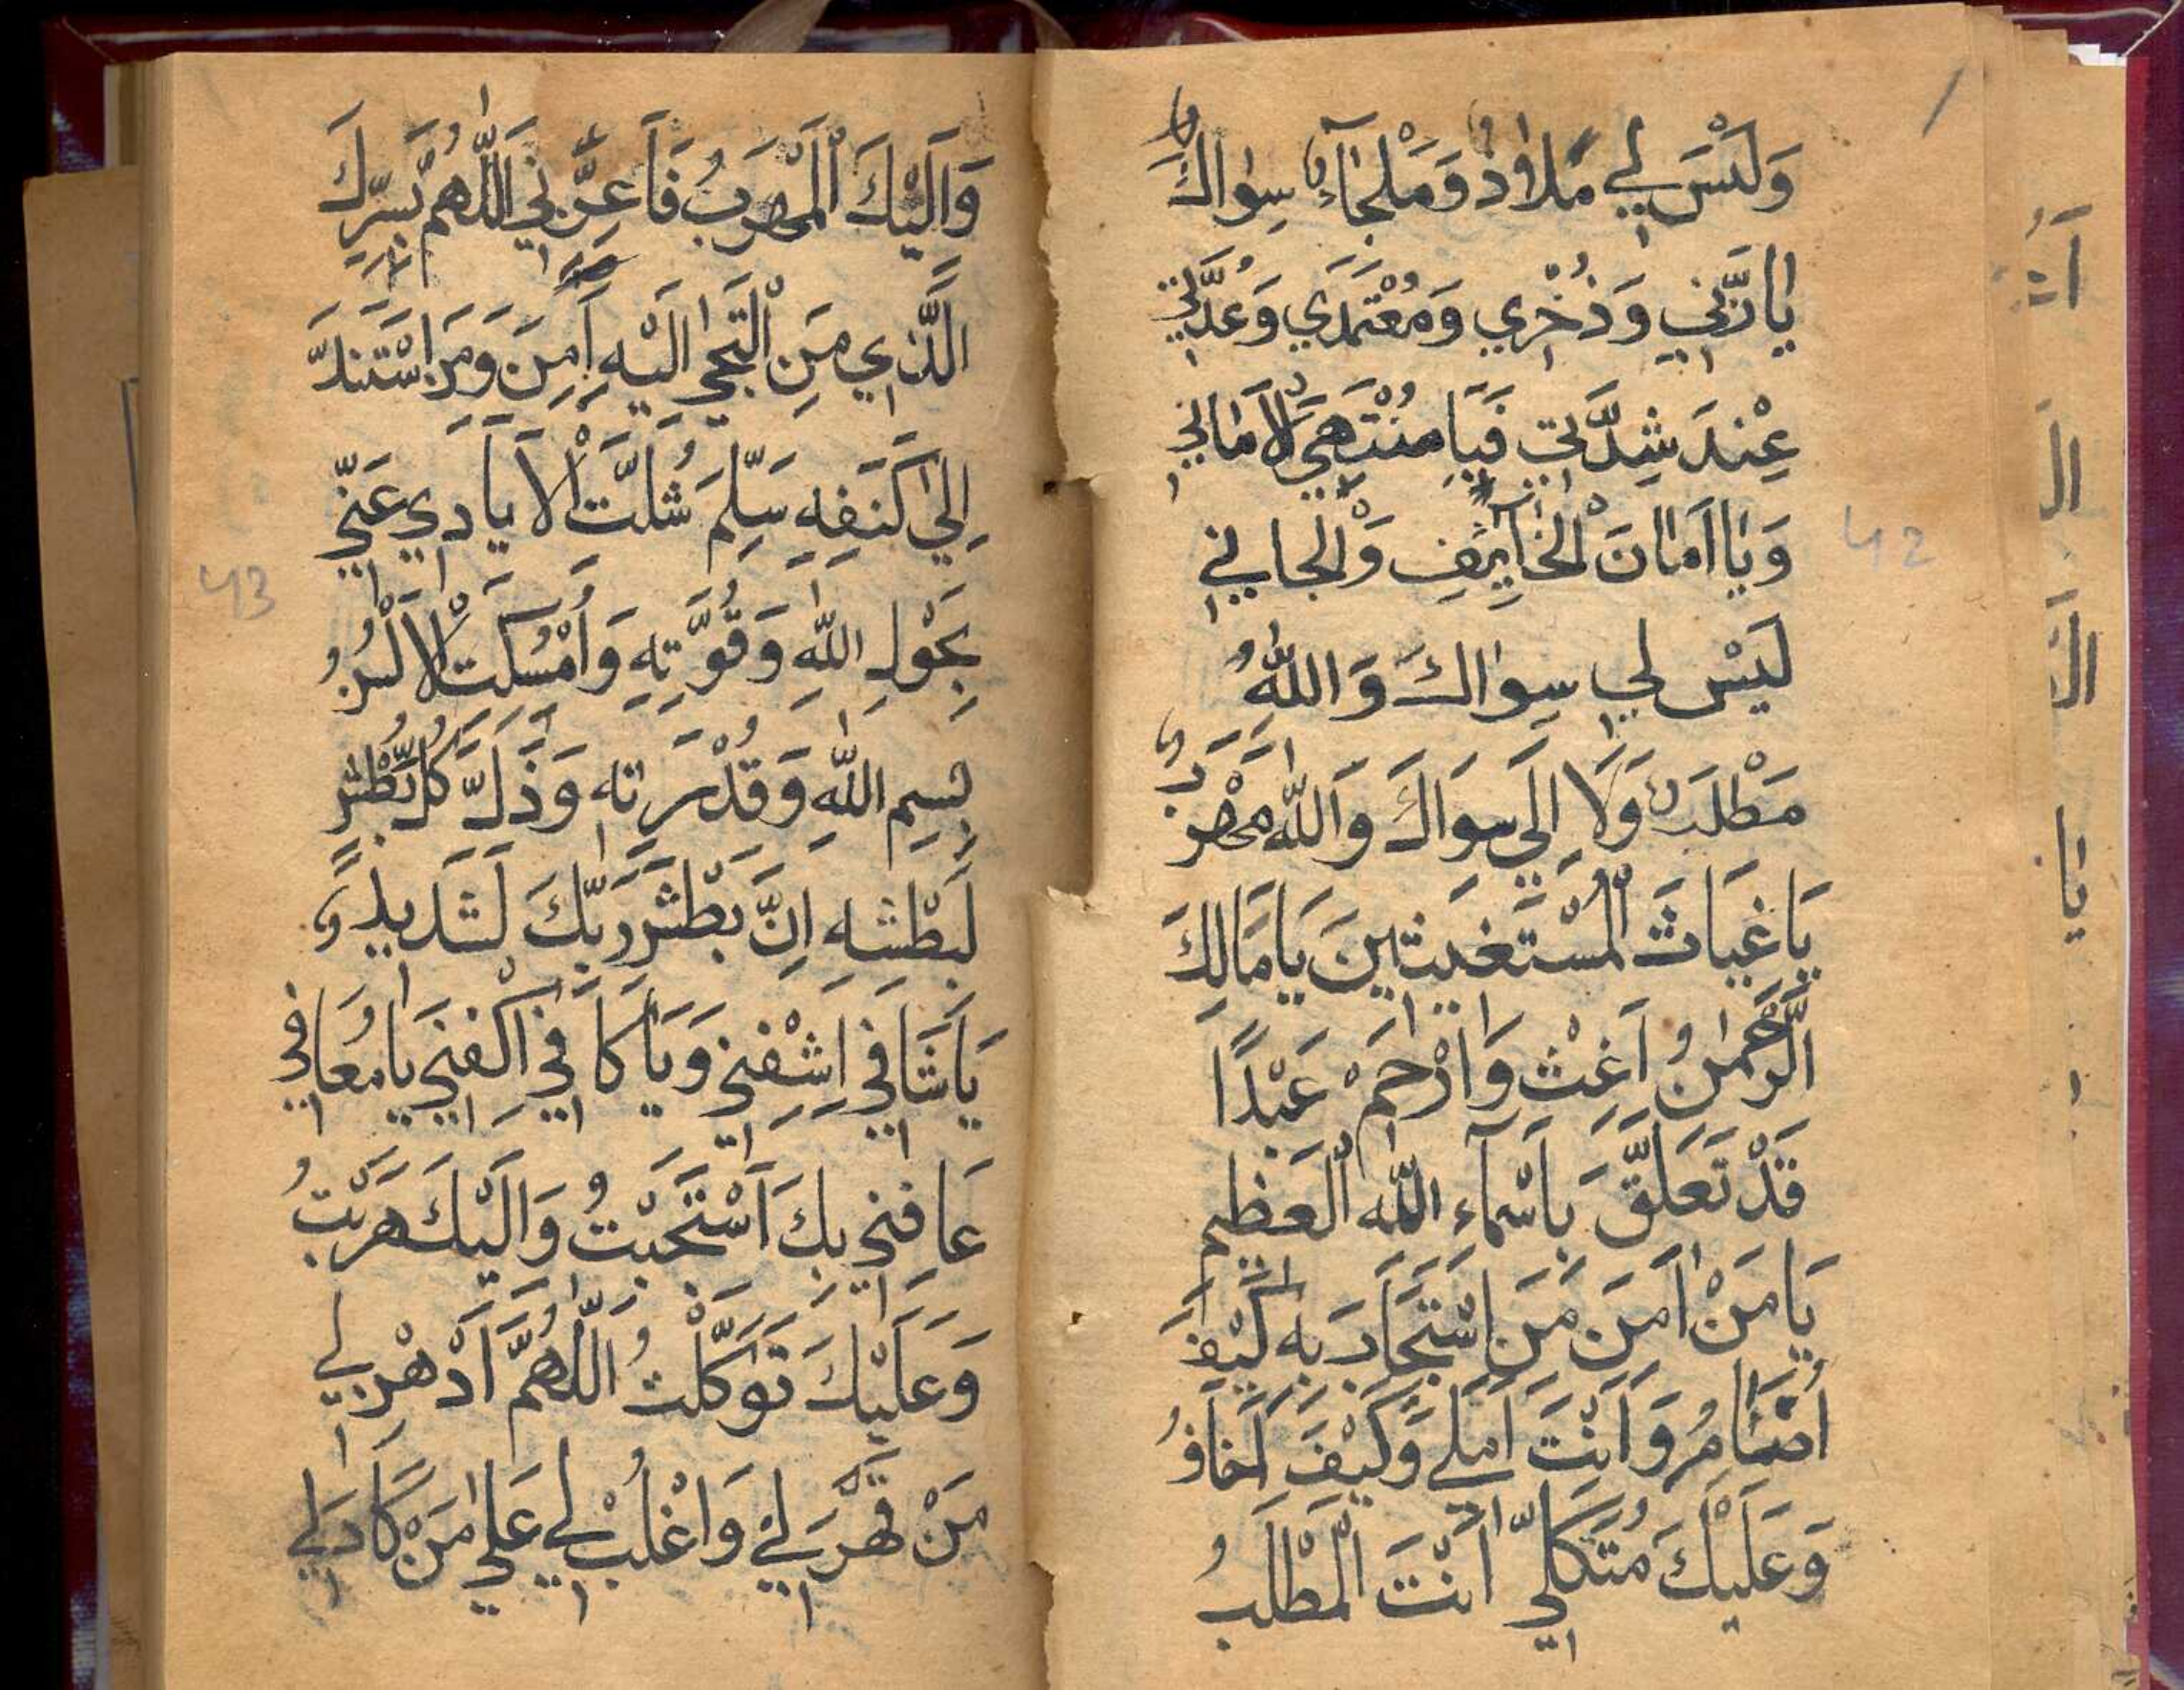 وَلَيْسَ لِي مَلَاوذٌ وَمَلْجَآءٌ سِوَاكَ
يَا رَبِّي وَذُخْرِي وَمُعْتَمَدِي وَعُدَّتِي
عِنْدَ شِدَّتِي فَيَا مُنْتَهَى الْاٰمَانِي
وَيَا اَمَانَ الْخَايِٕفِ وَالْجَانِي
لَيْسَ لِي سِوَاكَ وَاللّٰهُ
مَطْلَبٌ وَلَا اِلَي سِوَاكَ وَاللّٰهِ مَهْرَبٌ
يَا غِيَاثَ الْمُسْتَغِيثِينَ يَا مَالِكَ
الرَّحْمٰنُ اَغِثْ وَارْحَمْ عَبْدًا
قَدْ تَعَلَّقَ بِاَسْمَآءِ اللّٰهِ الْعَظِيمِ
يَا مَنْ اٰمَنَ مَنِ اسْتَجَارَ بِهِ كَيْفَ
اُضَامُ وَاَنْتَ اَمَلِي وَكَيْفَ اَخَافُ
وَعَلَيْكَ مُتَّكَلِي اَنْتَ الْمَطْلَبُ
42
وَاِلَيْكَ الْمَهْرَبُ فَاَعِزَّنِي اللّٰهُمَّ بِسِرِّكَ
الَّذِي مَنِ الْتَجَي اِلَيْهِ اَمِنَ وَمَنِ اسْتَنَدَ
اِلَي كَنَفِهِ سَلِمَ شُلَّتِ الْاَيَادِي عَنِّي
بِحَوْلِ اللّٰهِ وَقُوَّتِهِ وَاُمْسِكَتِ الْاَلْسُنُ
بِسِمِ اللّٰهِ وَقُدْرَتِهِ وَذَلَّ كُلُّ بَطْشٍ
لِبَطْشِهِ اِنَّ بَطْشَ رَبِّكَ لَشَدِيدٌ
يَا شَافِي اِشْفِنِي وَيَا كَافِي اكْفِنِي يَا مُعَافِي
عَافِنِي بِكَ اَسْتَجَبْتُ وَاِلَيْكَ هَرَبْتُ
وَعَلَيْكَ تَوَكَّلْتُ اللّٰهُمَّ اَدْهِرْ لِي
مَنْ قَهَرَ لِي وَاغْلُبْ لِي عَلٰي مَنْ كَادَ لِي
43